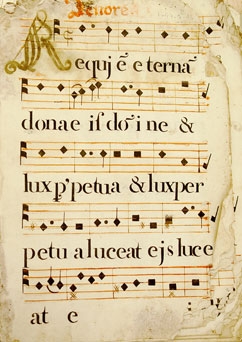 Tenore
Requiē eternā
dona eis do̅ine &
lux p̱'petua & lux per
petu a luceat ejs luce
at e i